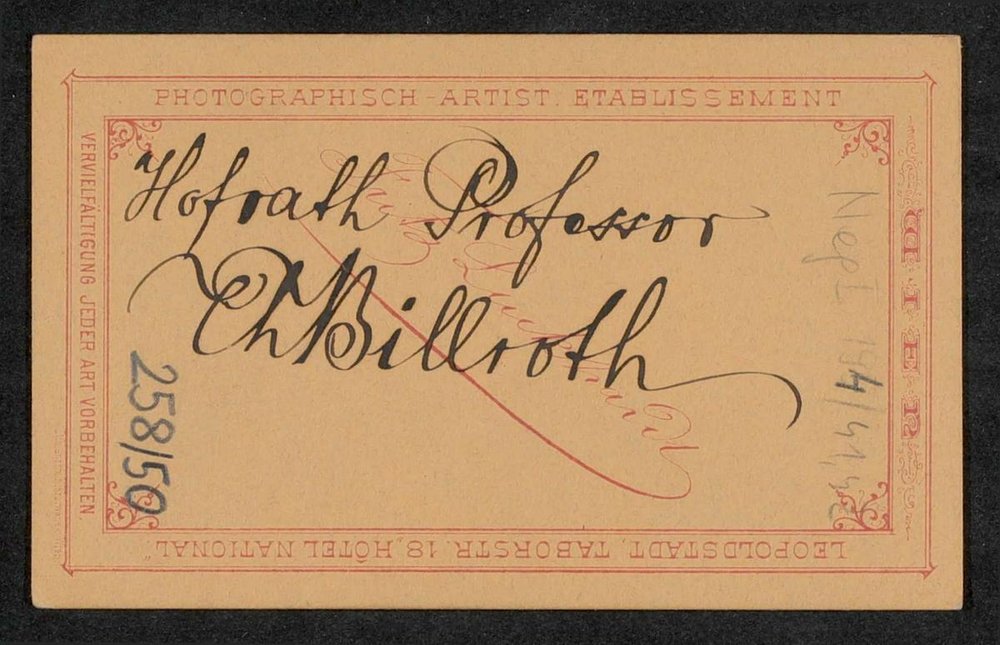 PHOTOGRAPHISCH-ARTIST. ETABLISSEMENT
Hofrath Professor
Th Billroth
WIEN
LEOPOLDSTADT, TABORSTR. 18, „HÔTEL NATIONAL“
VERVIELFÄLTIGUNG JEDER ART VORBEHALTEN.
258/50